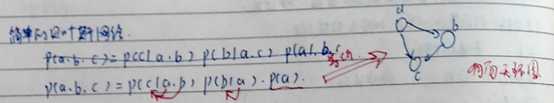 简单的贝叶斯网络
p(a.b.c)=p(c|a.b) p(b|a.c) p(a|.b.
p(a.b.c)=p(c|a.b) p(b|a).p(a).
a
b
c
有向无环图